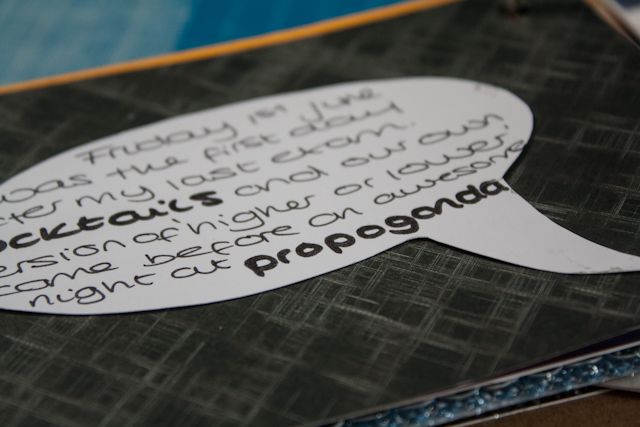 Friday 1st June
was the first day
after my last exam.
cocktails and our own
version of 'higher or lower'
came before an awesome
night at propaganda